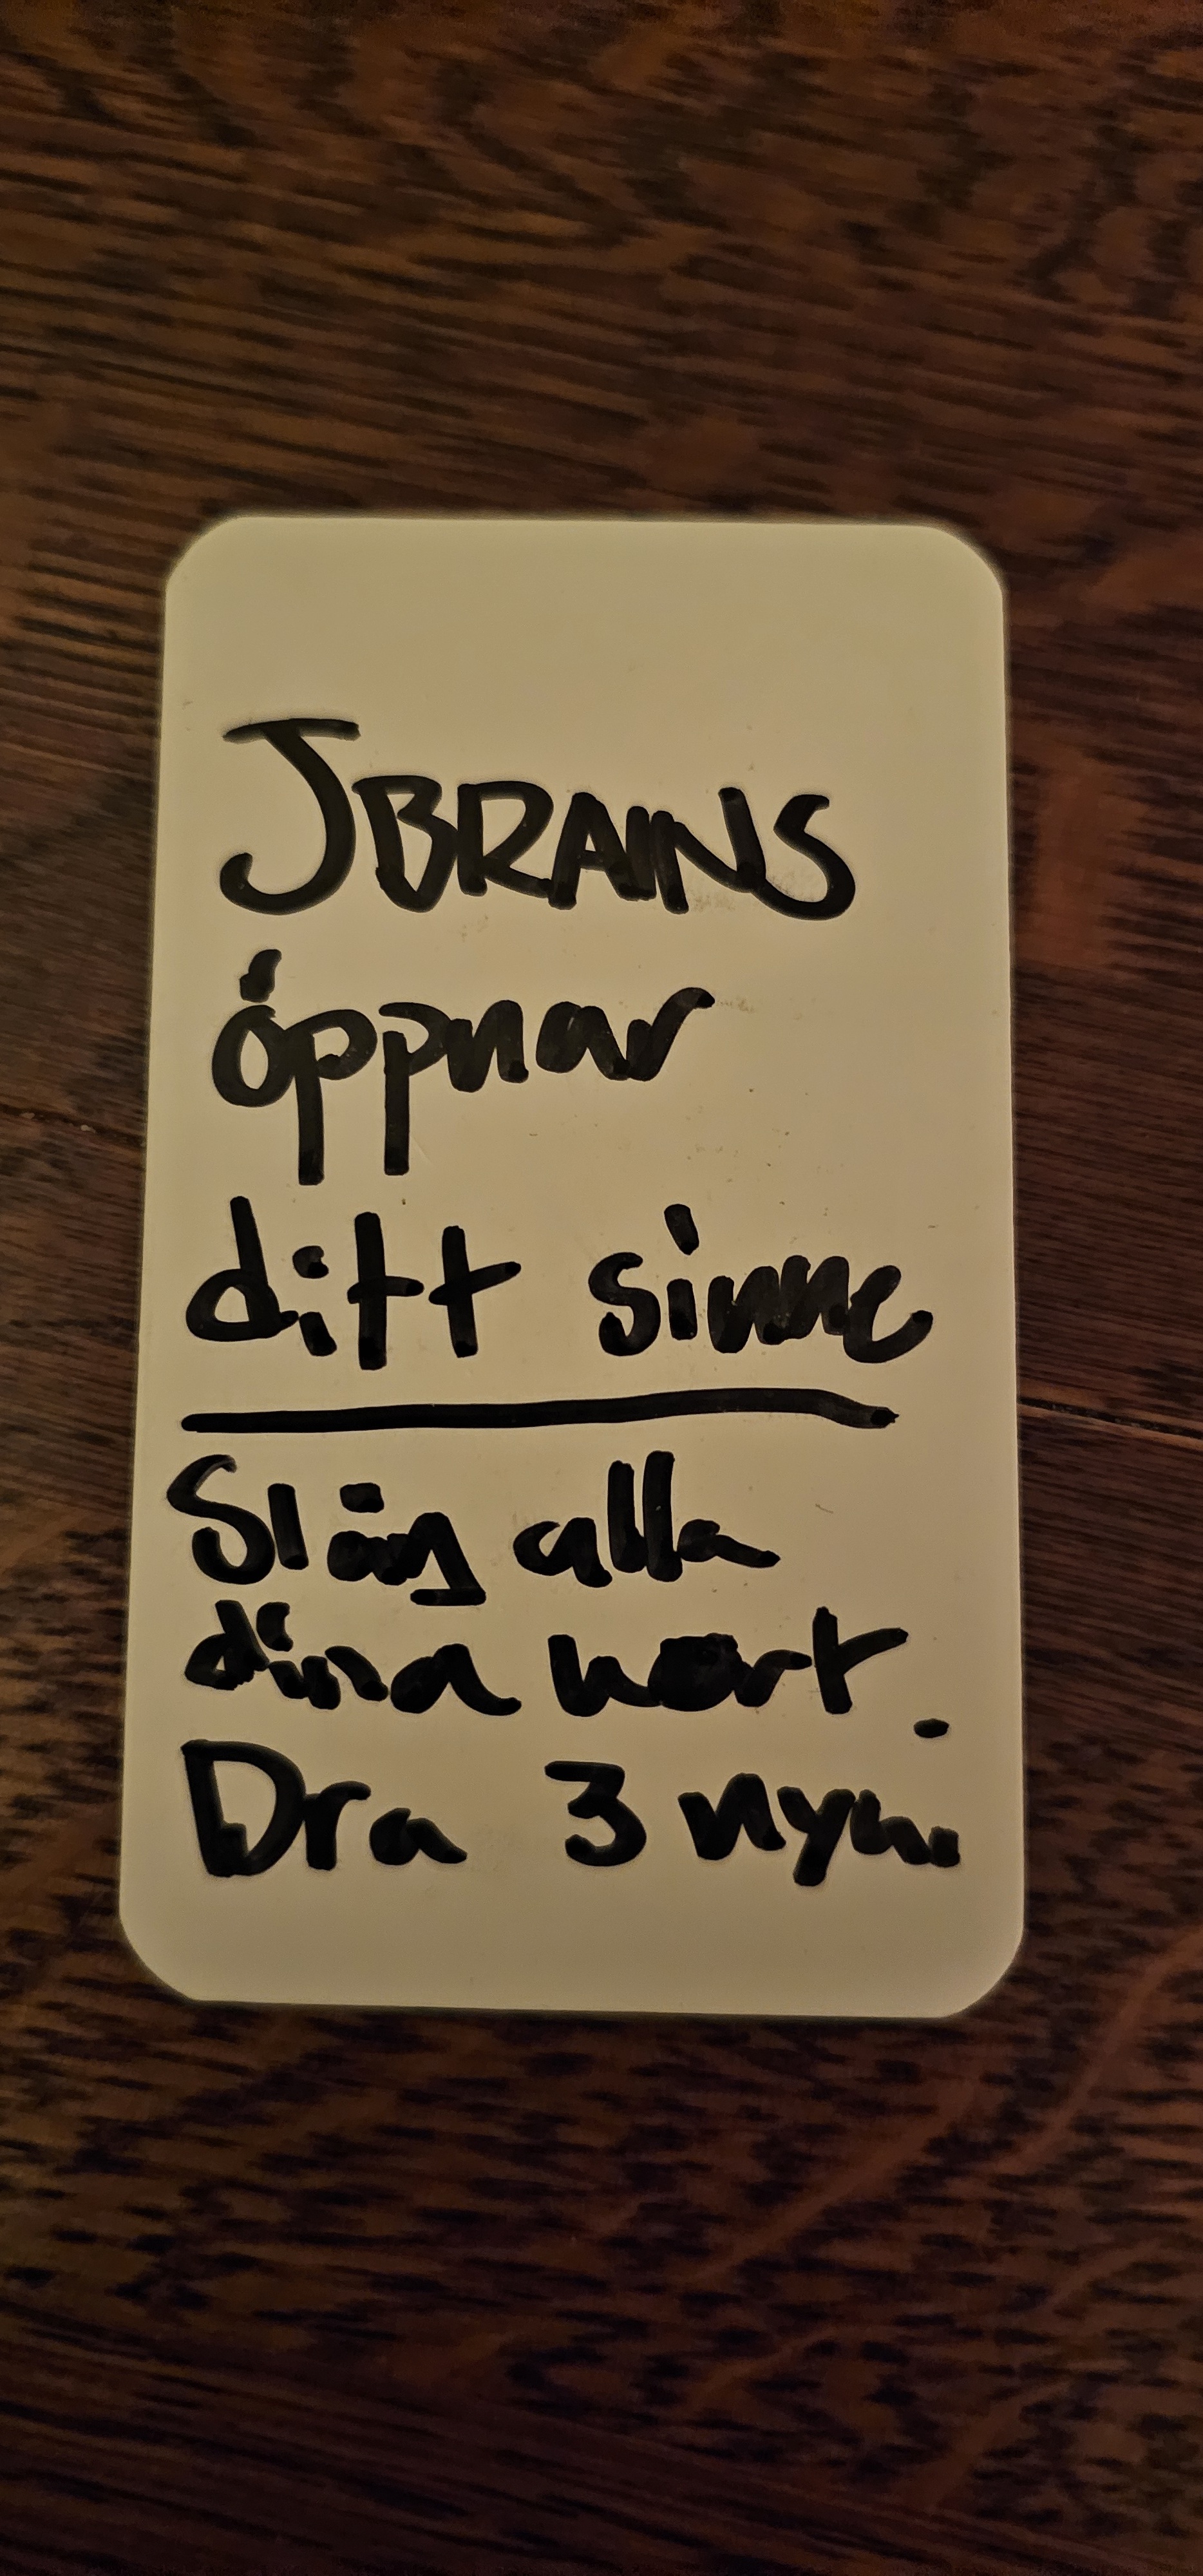 JBRAINS
öppnar
ditt sinne
Släng alla
dina kort.
Dra 3 nya.